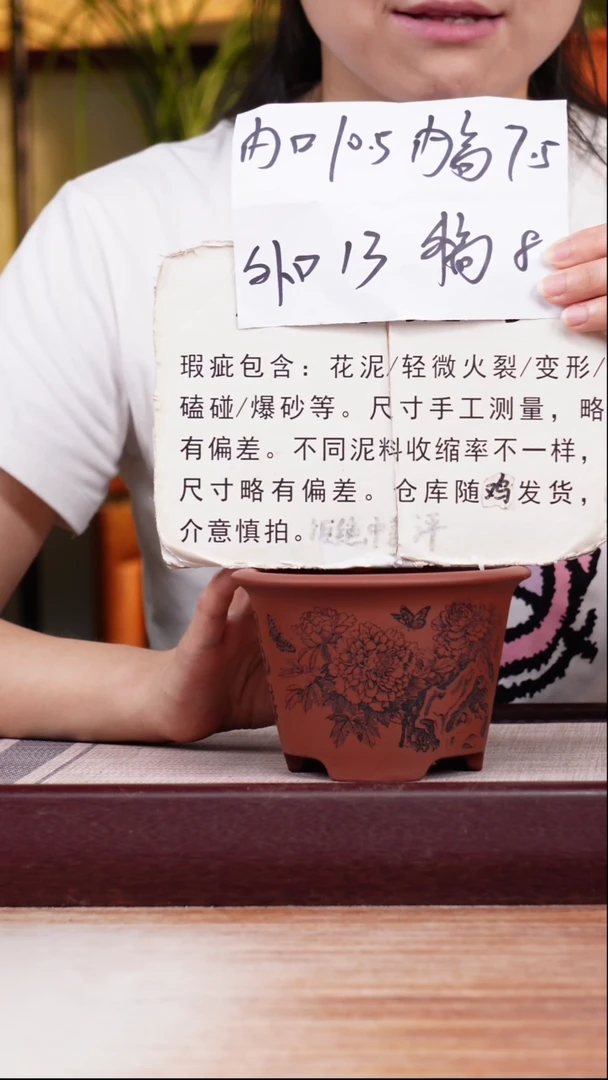 内口10.5 内高7.5
外口13 外高8
瑕疵包含：花泥/轻微火裂/变形/
磕碰/爆砂等。尺寸手工测量，略
有偏差。不同泥料收缩率不一样，
尺寸略有偏差。仓库随鸡发货，
介意慎拍。